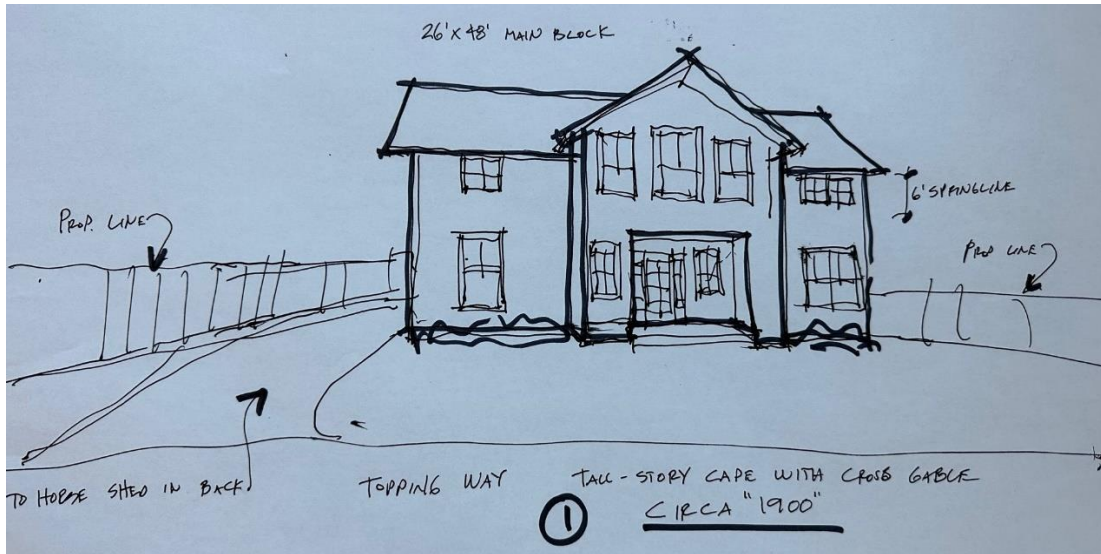 26'X48' MAIN BLOCK
6' SPRINGLINE
PROP. LINE
PROP LINE
TO HORSE SHED IN BACK
TOPPING WAY
TALL-STORY CAPE WITH CROSS GABLE
1
CIRCA "1900"